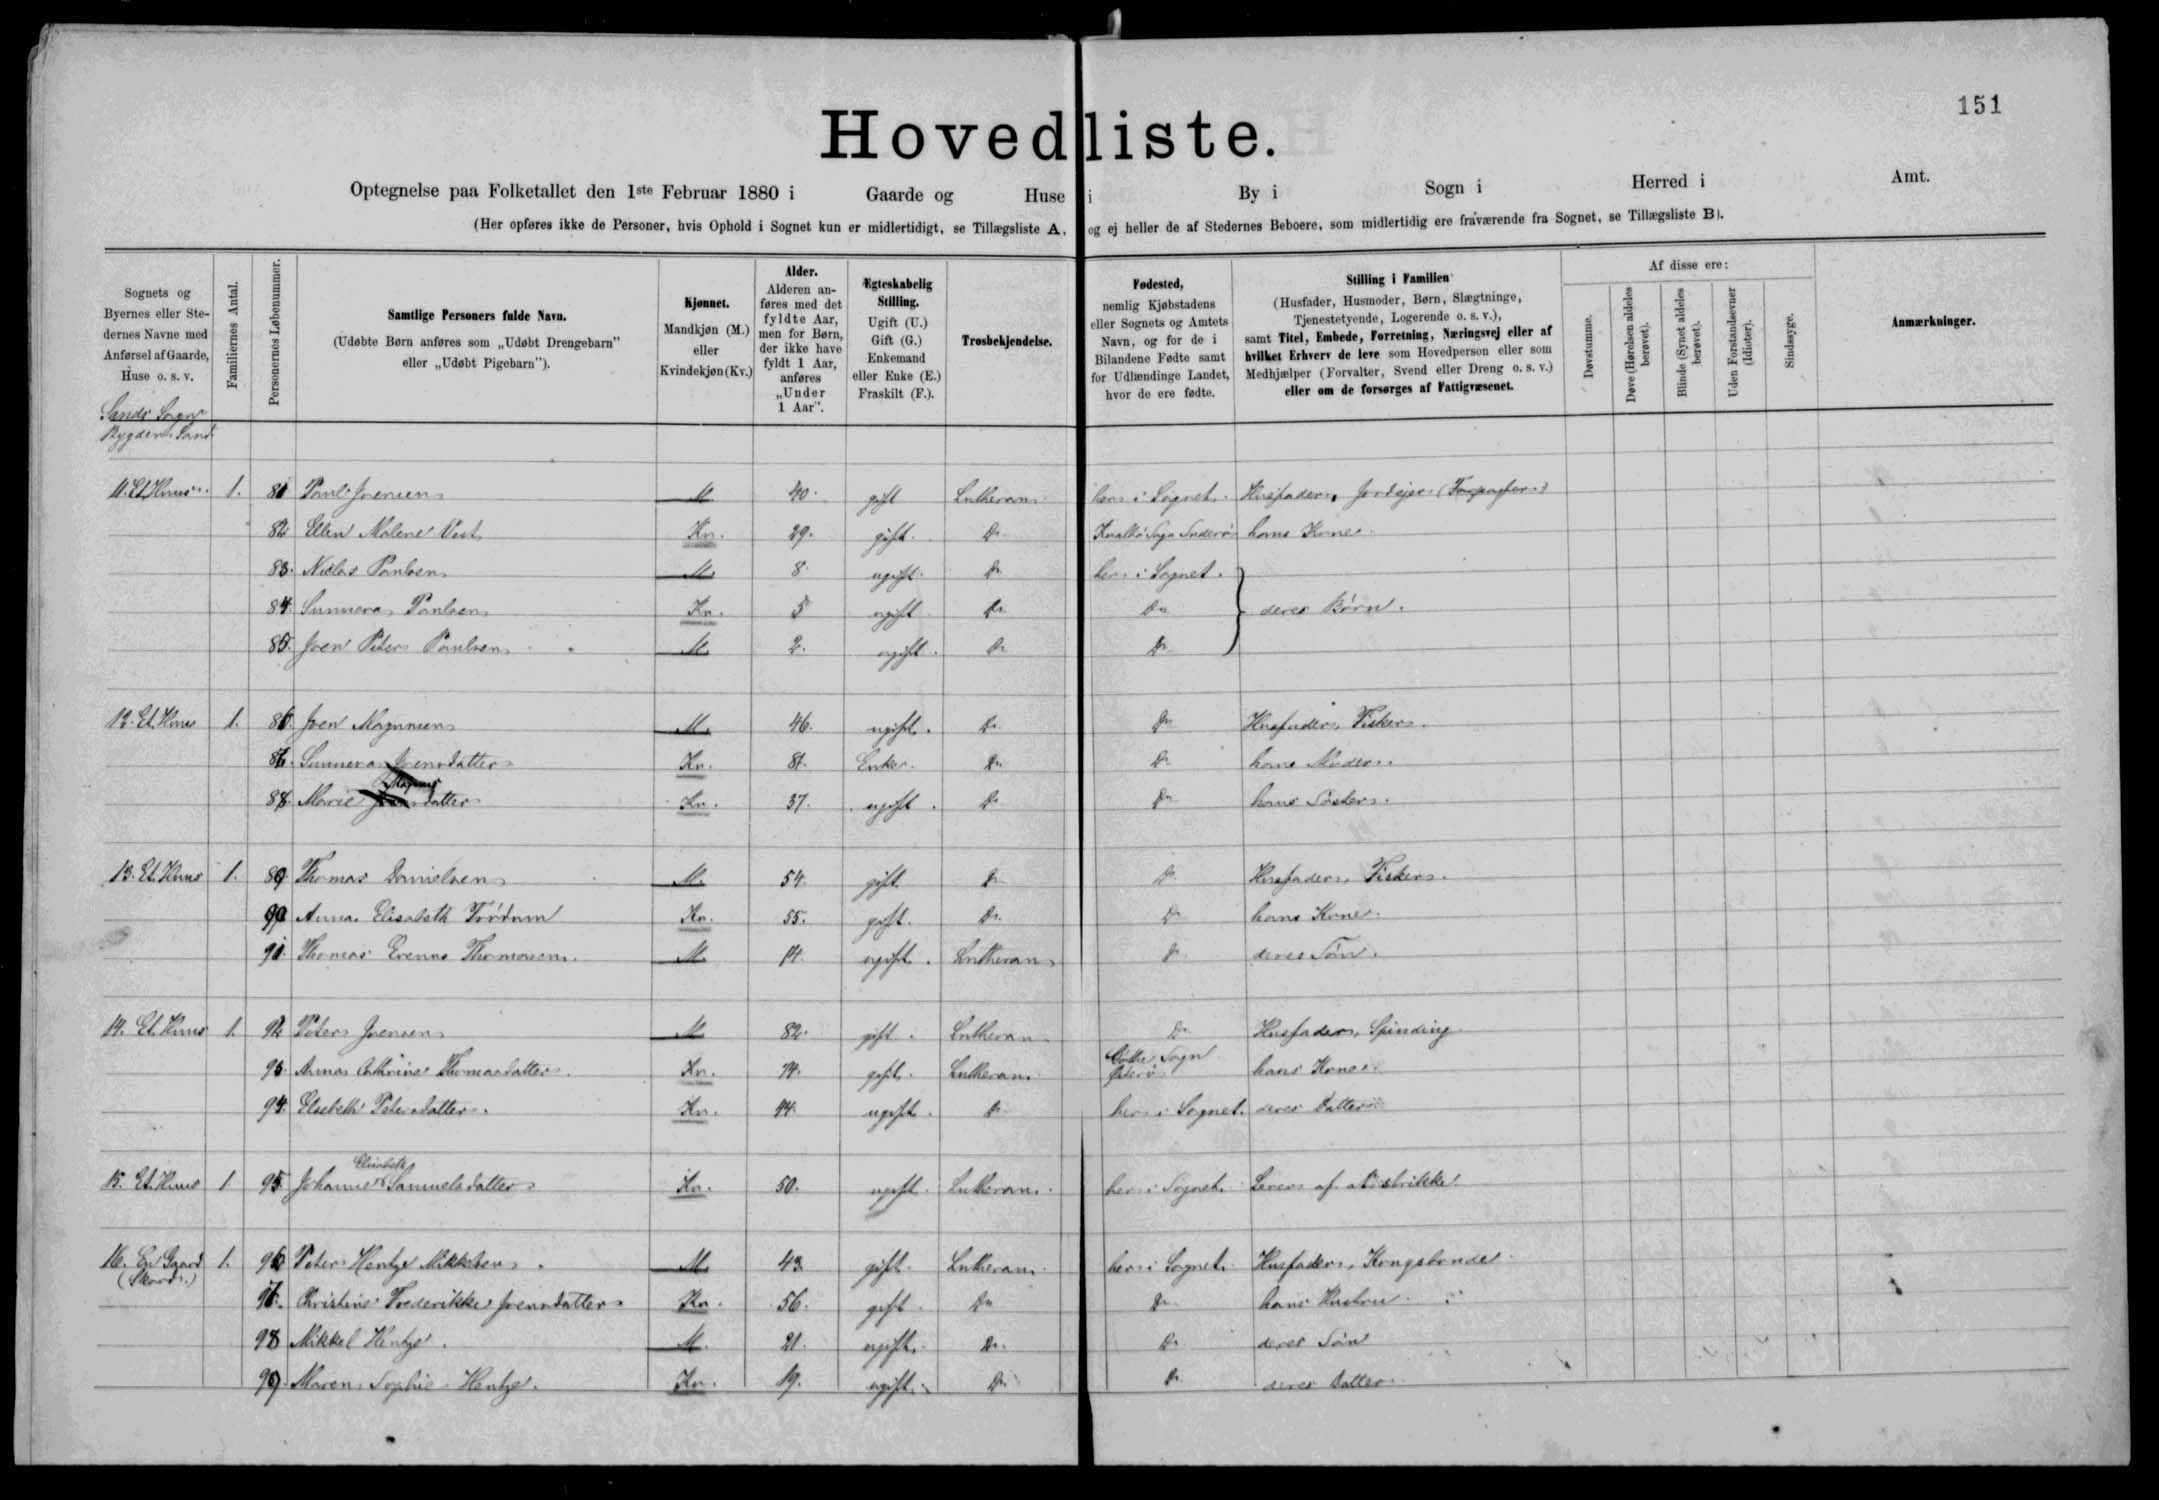 151
Hovedliste.
Optegnelse paa Folketallet den 1ste Februar 1880 i Gaarde og Huse i By i Sogn i Herred i Amt.
(Her opføres ikke de Personer, hvis Ophold i Sognet kun er midlertidigt, se Tillægsliste A, og ej heller de af Stedernes Beboere, som midlertidig ere fraværende fra Sognet, se Tillægsliste B).
Sognets og Byernes eller Stedernes Navne med Anførsel af Gaarde, Huse o. s. v.
Familiernes Antal.
Personernes Løbenummer.
Samtlige Personers fulde Navn.
(Udøbte Børn anføres som „Udøbt Drengebarn” eller „Udøbt Pigebarn”).
Kjønnet.
Mandkjøn (M.) eller Kvindekjøn (Kv.)
Alder.
Alderen anføres med det fyldte Aar, men for Børn, der ikke have fyldt 1 Aar, anføres „Under 1 Aar”.
Ægteskabelig Stilling.
Ugift (U.) Gift (G.) Enkemand eller Enke (E.) Fraskilt (F.).
Trosbekjendelse.
Fødested,
nemlig Kjøbstadens eller Sognets og Amtets Navn, og for de i Bilandene Fødte samt for Udlændinge Landet, hvor de ere fødte.
Stilling i Familien
(Husfader, Husmoder, Børn, Slægtninge, Tjenestetyende, Logerende o. s. v.), samt Titel, Embede, Forretning, Næringsvej eller af hvilket Erhverv de leve som Hovedperson eller som Medhjælper (Forvalter, Svend eller Dreng o. s. v.) eller om de forsørges af Fattigvæsenet.
Af disse ere:
Døvstumme.
Døve (Hørelsen aldeles berøvet).
Blinde (Synet aldeles berøvet).
Uden Forstandsevner (Idioter).
Sindssyge.
Anmærkninger.
Sands Sogn
Bygden Sand
11. Et Huus 1. 81 Poul Joensen M 40. gift Lutheran her i Sognet. Husfader, Jordejer
82 Ellen Malene Vest Kv. 29. gift Do Kvalbö Sogn Suderö hans Kone
83. Niclas Poulsen M 8 ugift Do her i Sognet.
84. Sunneva Poulsen Kv. 5 ugift Do Do deres Börn.
85. Joen Peter Poulsen M. 2. ugift. Do Do
12. Et Huus 1. 86. Joen Magnusen M. 46. ugift. Do Do Husfader, Fisker.
87. Sunneva Joensdatter Kv. 81. Enke. Do Do hans Moder.
88. Marie Magnusdatter Kv. 37. ugift. Do Do hans Söster.
13. Et Huus 1. 89 Thomas Danielsen M. 54. gift Do Do Husfader, Fisker.
90 Anna Elisabeth Trödum Kv. 55. gift. Do Do hans Kone.
91. Thomas Evenus Thomasen. M 14. ugift. Lutheran Do deres Sön.
14. Et Huus 1. 92 Peter Joensen M 82. gift. Lutheran Do Husfader, Spinding
93. Anna Cathrine Thomasdatter. Kv. 74. gift. Lutheran Sogn Österö hans Kone
94. Elsebeth Petersdatter. Kv. 44. ugift. Do her i Sognet. deres Datter
15. Et Huus 1 95. Johanne Elisabeth Samuelsdatter Kv. 50. ugift Lutheran. her i Sognet. Lever af at strikke
16. En Gaard (Skard.) 1. 96 Peter Hentze Mikkelsen M. 43 gift Lutheran her i Sognet. Husfader, Kongsbonde
97. Christine Frederikke Joensdatter Kv. 56. gift Do Do hans Hustru
98 Mikkel Hentze. M. 21. ugift. Do. Do deres Sön
99. Maren Sophie Hentze. Kv. 19. ugift. Do Do deres Datter